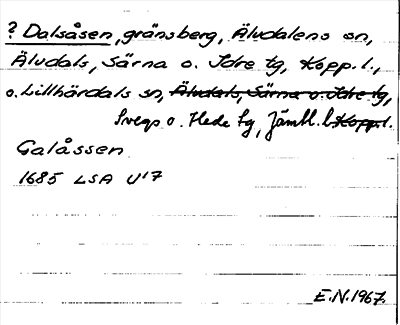 ? Dalsåsen, gränsberg, Äludalens sn,
Äludals, Särna o. Idre tg, Kopp. l.,
o. Lillhärdals sn, Äludals, Särna o. Idre tg,
Svegs o. Hede tg, Jämtl. l. Kopp. l.
Galåssen
1685 LSA U¹7
E.N. 1967.